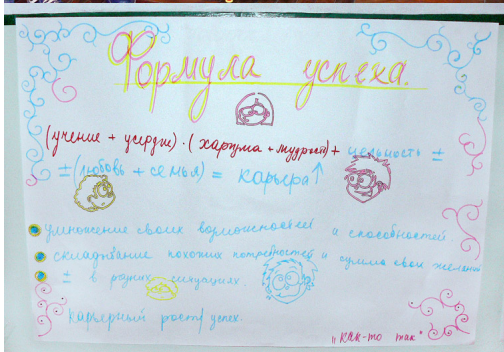 Формула успеха.
(учение + усердие) · (харизма + мудрость) + цельность ±
± (любовь + семья) = карьера ↑
умножение своих возможностей и способностей.
складывание похожих потребностей и сумма свои желаний
± в разных ситуациях.
карьерный рост/успех.
"как-то так"